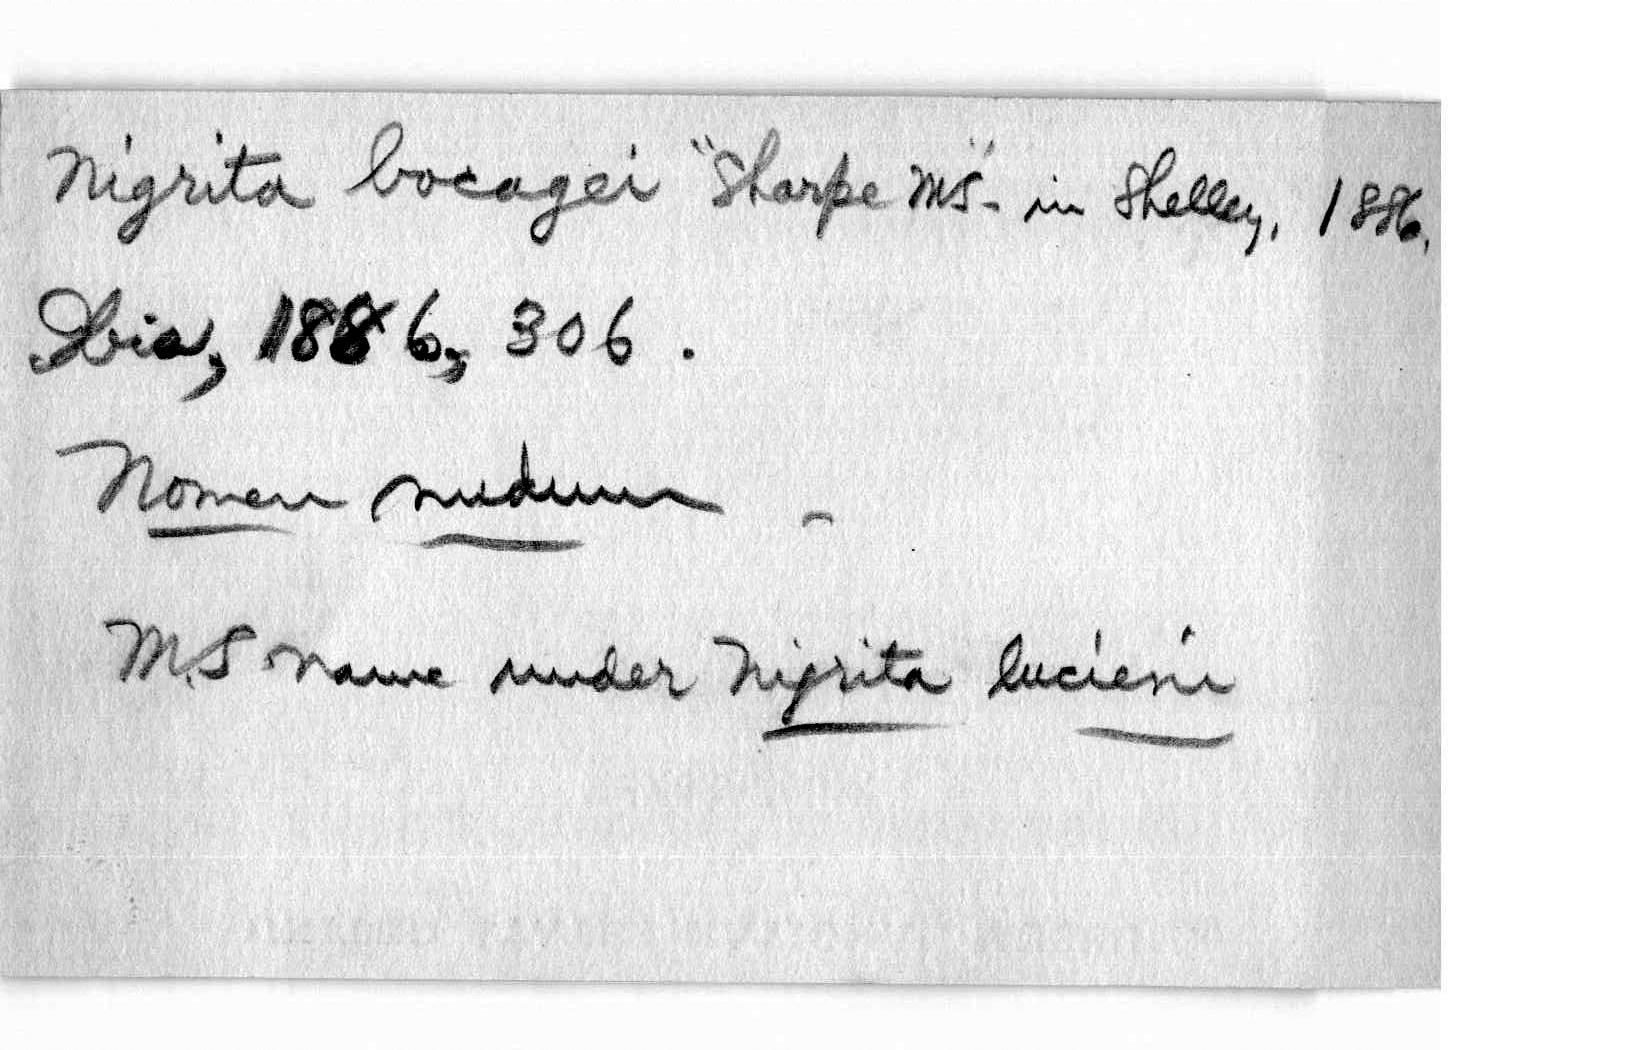 Nigrita bocagei "Sharpe MS" in Shelley, 1886,
Ibis, 1886, 306.
Nomen nudum -
M.S name under Nigrita lucieni